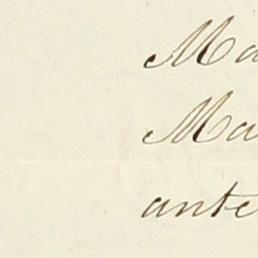 Ma
Ma
ante